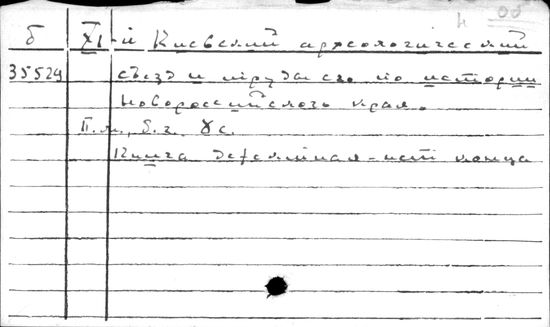 б XI-й Киевский археологический
35529 съезд и труды его по истории
Новороссийского края.
б.г. 8с.
Книга дефектная - нет конца